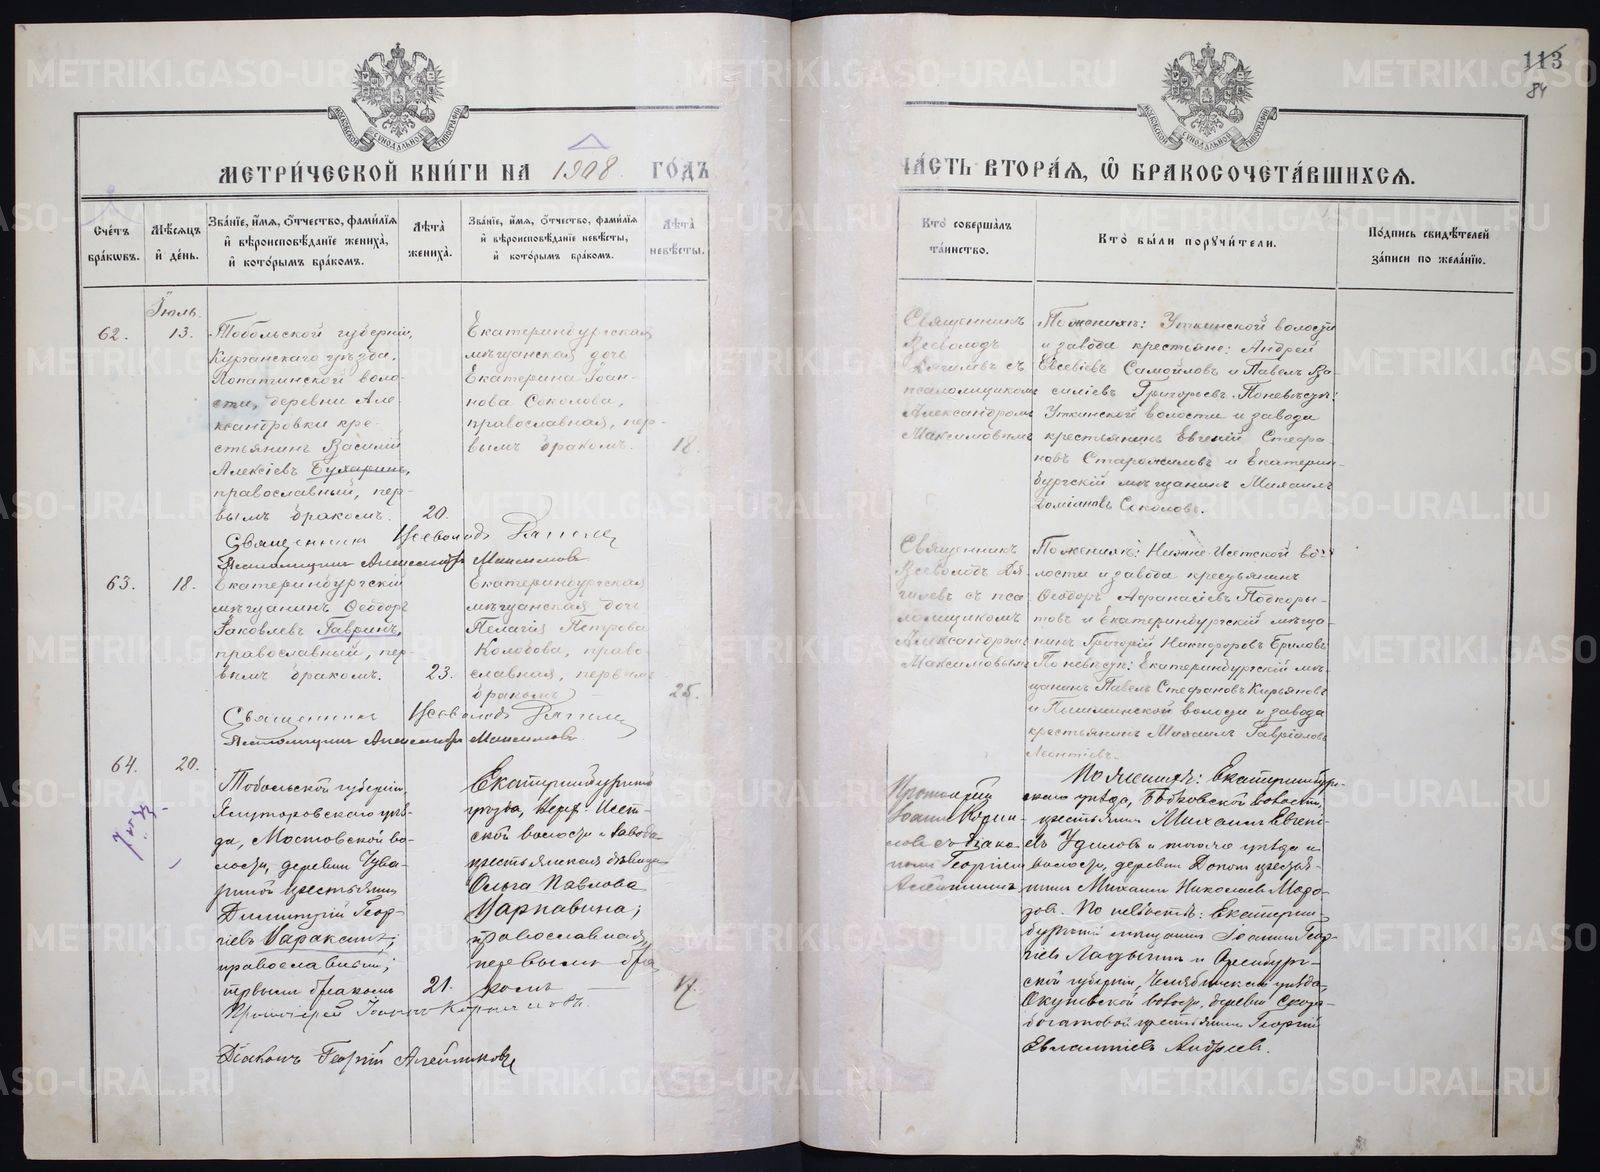 113
84
МЕТРИ́ЧЕСКОЙ КНИ́ГИ НА 1908 ГО́ДЪ
ЧА́СТЬ ВТОРА́Я, Ѡ҆ БРАКОСОЧЕТА́ВШИХСѦ.
Сче́тъ бра́кѡвъ.
Мѣ́сяцъ и҆ де́нь.
Зва́нїе, и҆́мѧ, ѻ҆́тчество, фами́лїѧ и҆ вѣроисповѣ́данїе жениха̀, и҆ кото́рымъ бра́комъ.
Лѣ́та жениха̀.
Зва́нїе, и҆́мѧ, ѻ҆́тчество, фами́лїѧ и҆ вѣроисповѣ́данїе невѣ́сты, и҆ кото́рымъ бра́комъ.
Лѣ́та невѣ́сты.
Кто̀ соверша́лъ та́инство.
Кто̀ бы́ли порꙋчи́тели.
По́дпись свидѣ́телей за́писи по жела́нїю.
62.
Іюль.
13.
Тобольской губерніи,
Курганскаго уѣзда,
Лопатинской воло-
сти, деревни Але
ксандровки кре-
стьянинъ Василій
Алексіевъ Бухаринъ,
православный, пер-
вымъ бракомъ.
20.
Екатеринбургская
мѣщанская дочь
Екатерина Іоан-
нова Соколова,
православная, пер-
вымъ бракомъ.
18.
Священникъ
Всеволодъ
Дягилевъ съ
псаломщикомъ
Александромъ
Максимовымъ
По женихѣ: Уткинской волости
и завода крестьяне: Андрей
Евсевіевъ Самойловъ и Павелъ Ва-
силіевъ Григорьевъ. По невѣстѣ:
Уткинской волости и завода
крестьянинъ Евгеній Стефа-
новъ Старожиловъ и Екатерин-
бургскій мѣщанинъ Михаилъ
Доміановъ Соколовъ.
Священникъ Всеволодъ Дягилевъ
Псаломщикъ Александръ Максимовъ
63.
18.
Екатеринбургскій
мѣщанинъ Ѳеодоръ
Іаковлевъ Гавринъ,
православный, пер-
вымъ бракомъ.
23.
Екатеринбургская
мѣщанская дочь
Пелагія Петрова
Колобова, право-
славная, первымъ
бракомъ
25.
Священникъ
Всеволодъ Дя-
гилевъ съ пса
ломщикомъ
Александромъ
Максимовымъ
По женихѣ: Нижне-Исетской во-
лости и завода крестьянинъ
Ѳеодоръ Аѳанасіевъ Подкоры-
товъ и Екатеринбургскій мѣща-
нинъ Григорій Никифоровъ Ериловъ
По невѣстѣ: Екатеринбургскій мѣ-
щанинъ Павелъ Стефановъ Кирьяновъ
и Пышминской волости и завода
крестьянинъ Михаилъ Гавріиловъ
Леонтіевъ.
Священникъ Всеволодъ Дягилевъ
Псаломщикъ Александръ Максимовъ
64.
20.
Тобольской губерніи,
Ялуторовскаго уѣз-
да, Мостовской во-
лости, деревни
крестьянинъ
Димитрій Геор-
гіевъ
православный;
первымъ бракомъ
21.
Екатеринбургскаго
уѣзда, Верх-Исет-
ской волости и завода
крестьянская дѣвица
Ольга Павлова
православная,
первымъ бра
комъ
17.
Протоіерей
Іоаннъ
съ діако-
номъ Георгіемъ
По женихѣ: Екатеринбург-
скаго уѣзда, волости,
крестьянинъ Михаилъ Евгені-
евъ и того же уѣзда и
волости, деревни кресть-
янинъ Михаилъ Николаевъ Моро-
зовъ. По невѣстѣ: Екатерин-
бургскій мѣщанинъ Іоаннъ Геор-
гіевъ Ладыгинъ и Оренбург-
ской губерніи, Челябинскаго уѣзда,
Окуневской волости, деревни
крестьянинъ Георгій
Евлампіевъ Андреевъ.
Протоіерей Іоаннъ
Діаконъ Георгій
METRIKI.GASO-URAL.RU